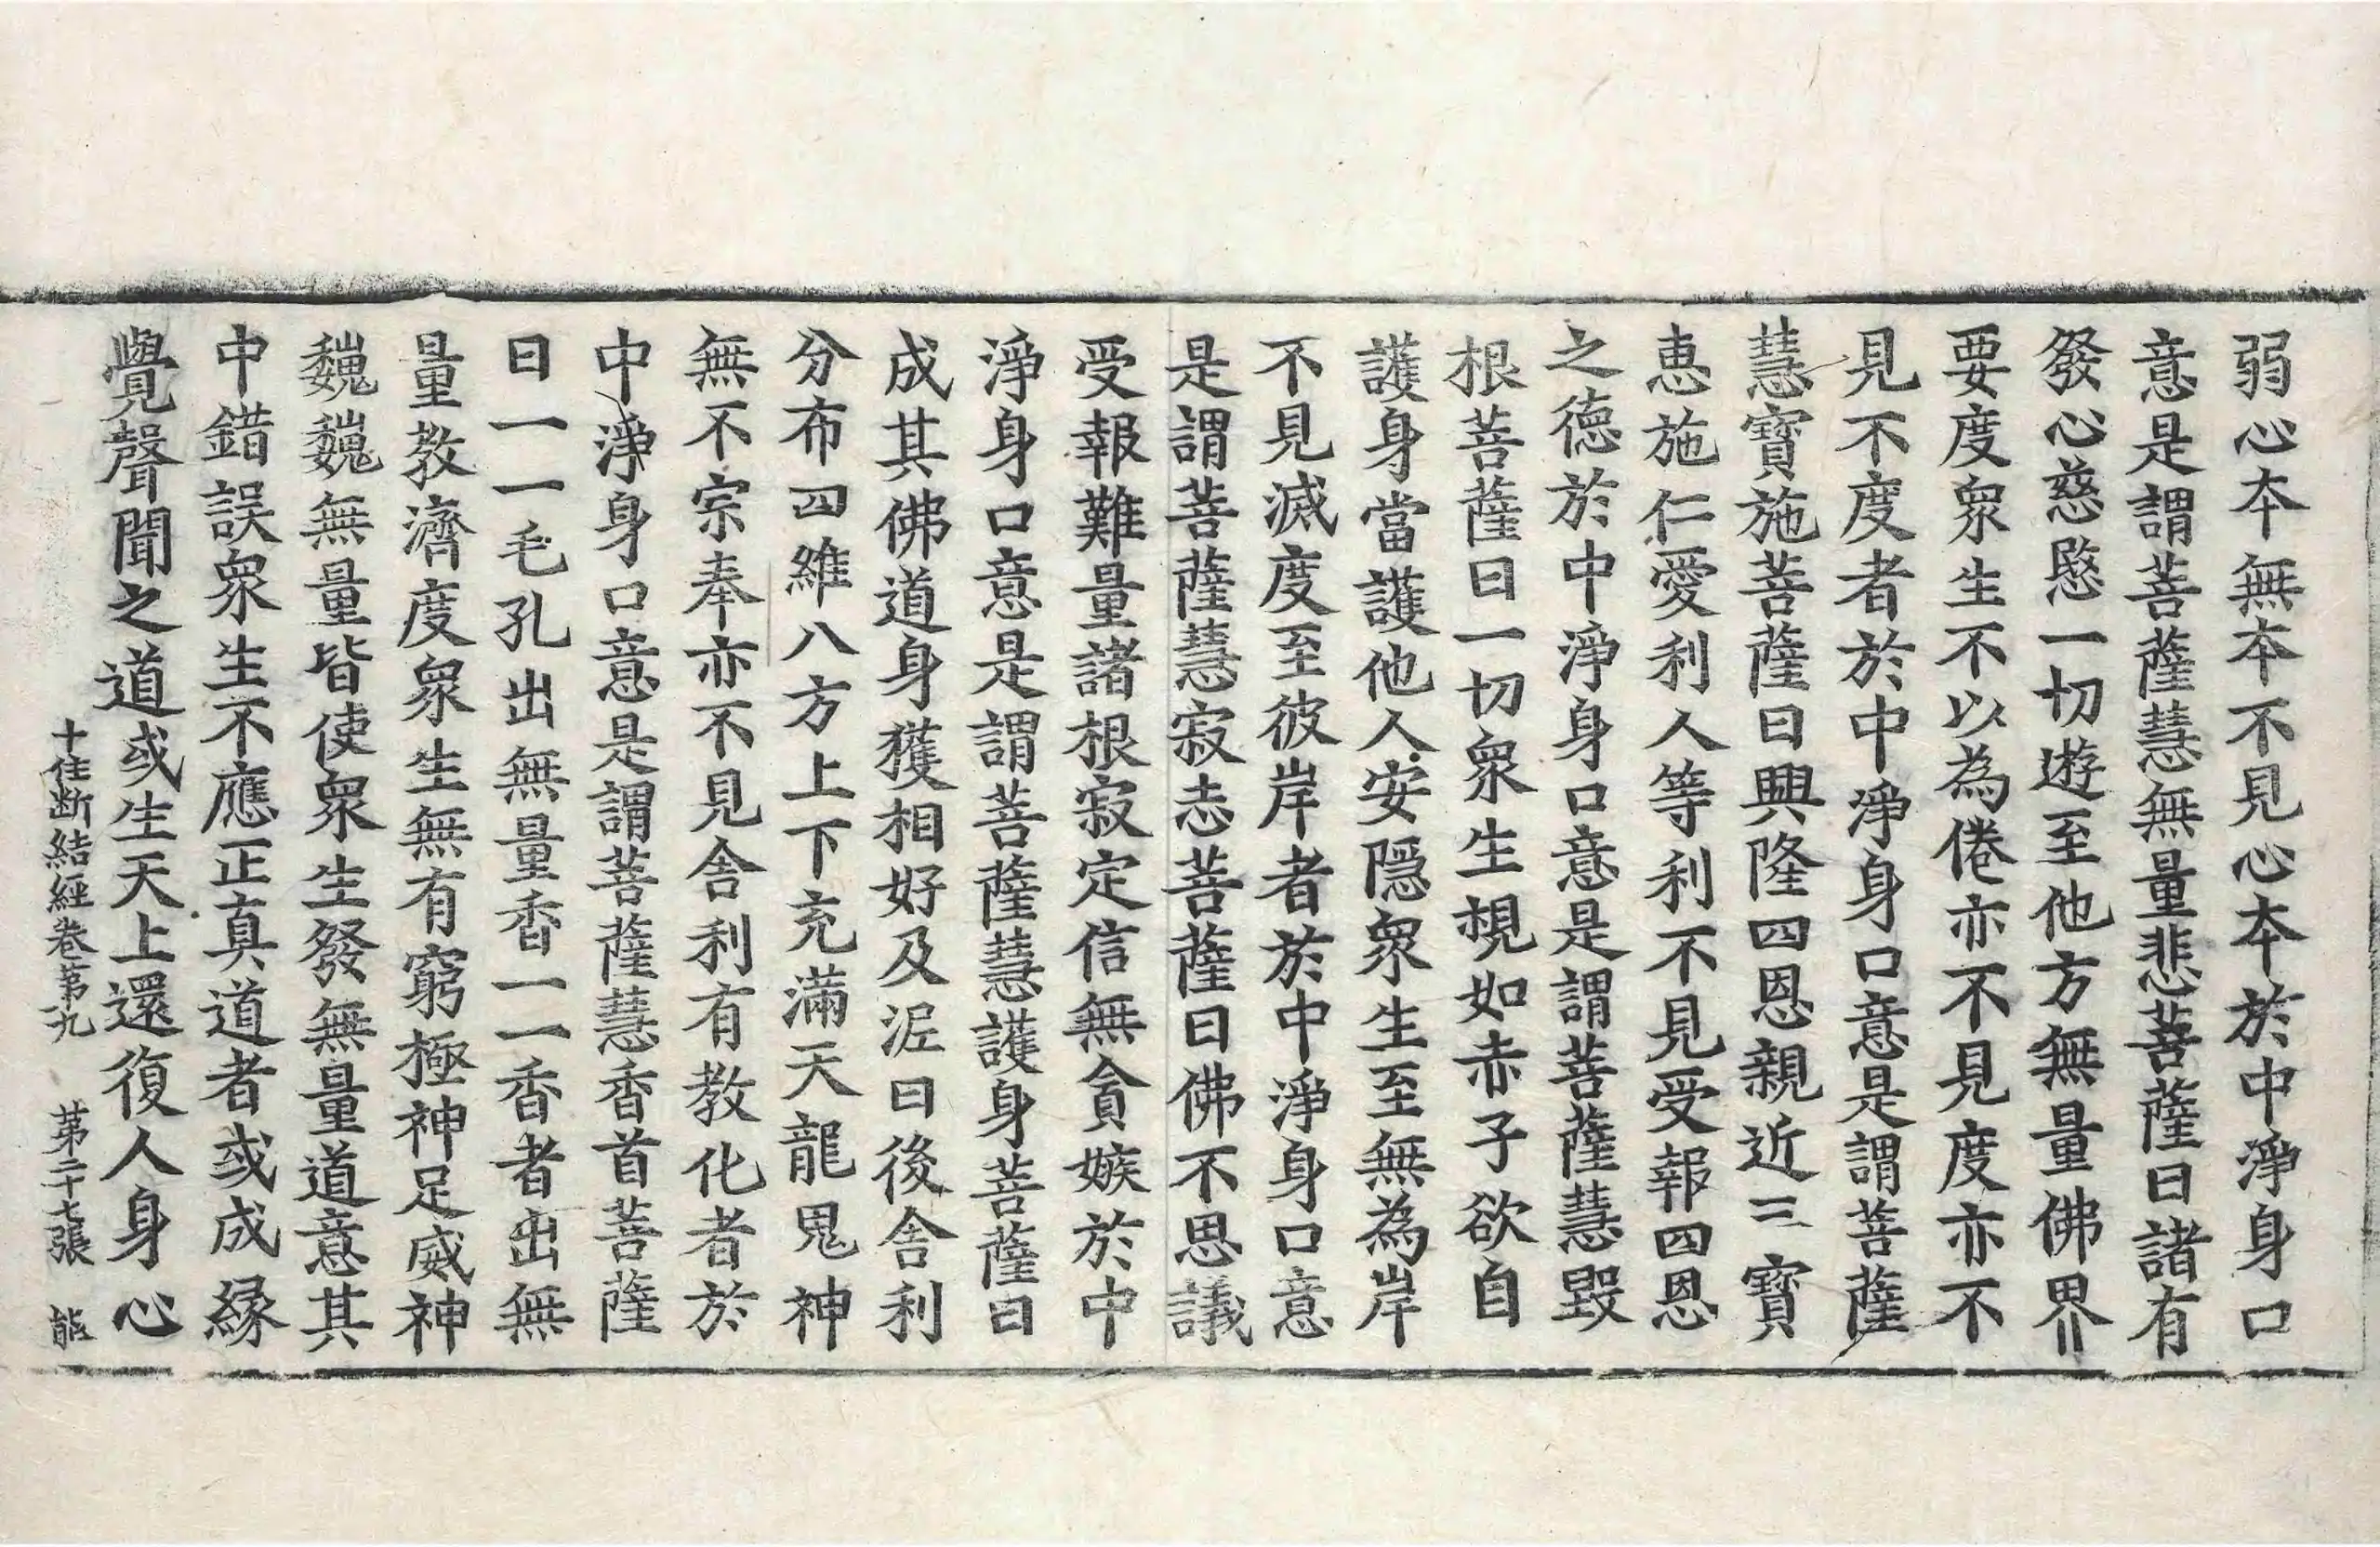 弱心本無本不見心本於中淨身口
意是謂菩薩慧無量悲菩薩曰諸有
發心慈愍一切遊至他方無量佛界
要度衆生不以為倦亦不見度亦不
見不度者於中淨身口意是謂菩薩
慧寶施菩薩曰興隆四恩親近三寶
恵施仁愛利人等利不見受報四恩
之德於中淨身口意是謂菩薩慧毀
根菩薩曰一切衆生想如赤子欲自
護身當護他人安隱衆生至無為岸
不見滅度至彼岸者於中淨身口意
是謂菩薩慧寂志菩薩曰佛不思議
受報難量諸根寂定信無貪嫉於中
淨身口意是謂菩薩慧護身菩薩曰
成其佛道身獲相好及泥曰後舍利
分布四維八方上下充滿天龍鬼神
無不宗奉亦不見舍利有教化者於
中淨身口意是謂菩薩慧香首菩薩
曰一一毛孔出無量香一一香者出無
量教濟度衆生無有窮極神足威神
巍巍無量皆使衆生發無量道意其
中錯誤衆生不應正真道者或成緣
覺聲聞之道或生天上還復人身心
十住断結經卷第九　第二十七張　能